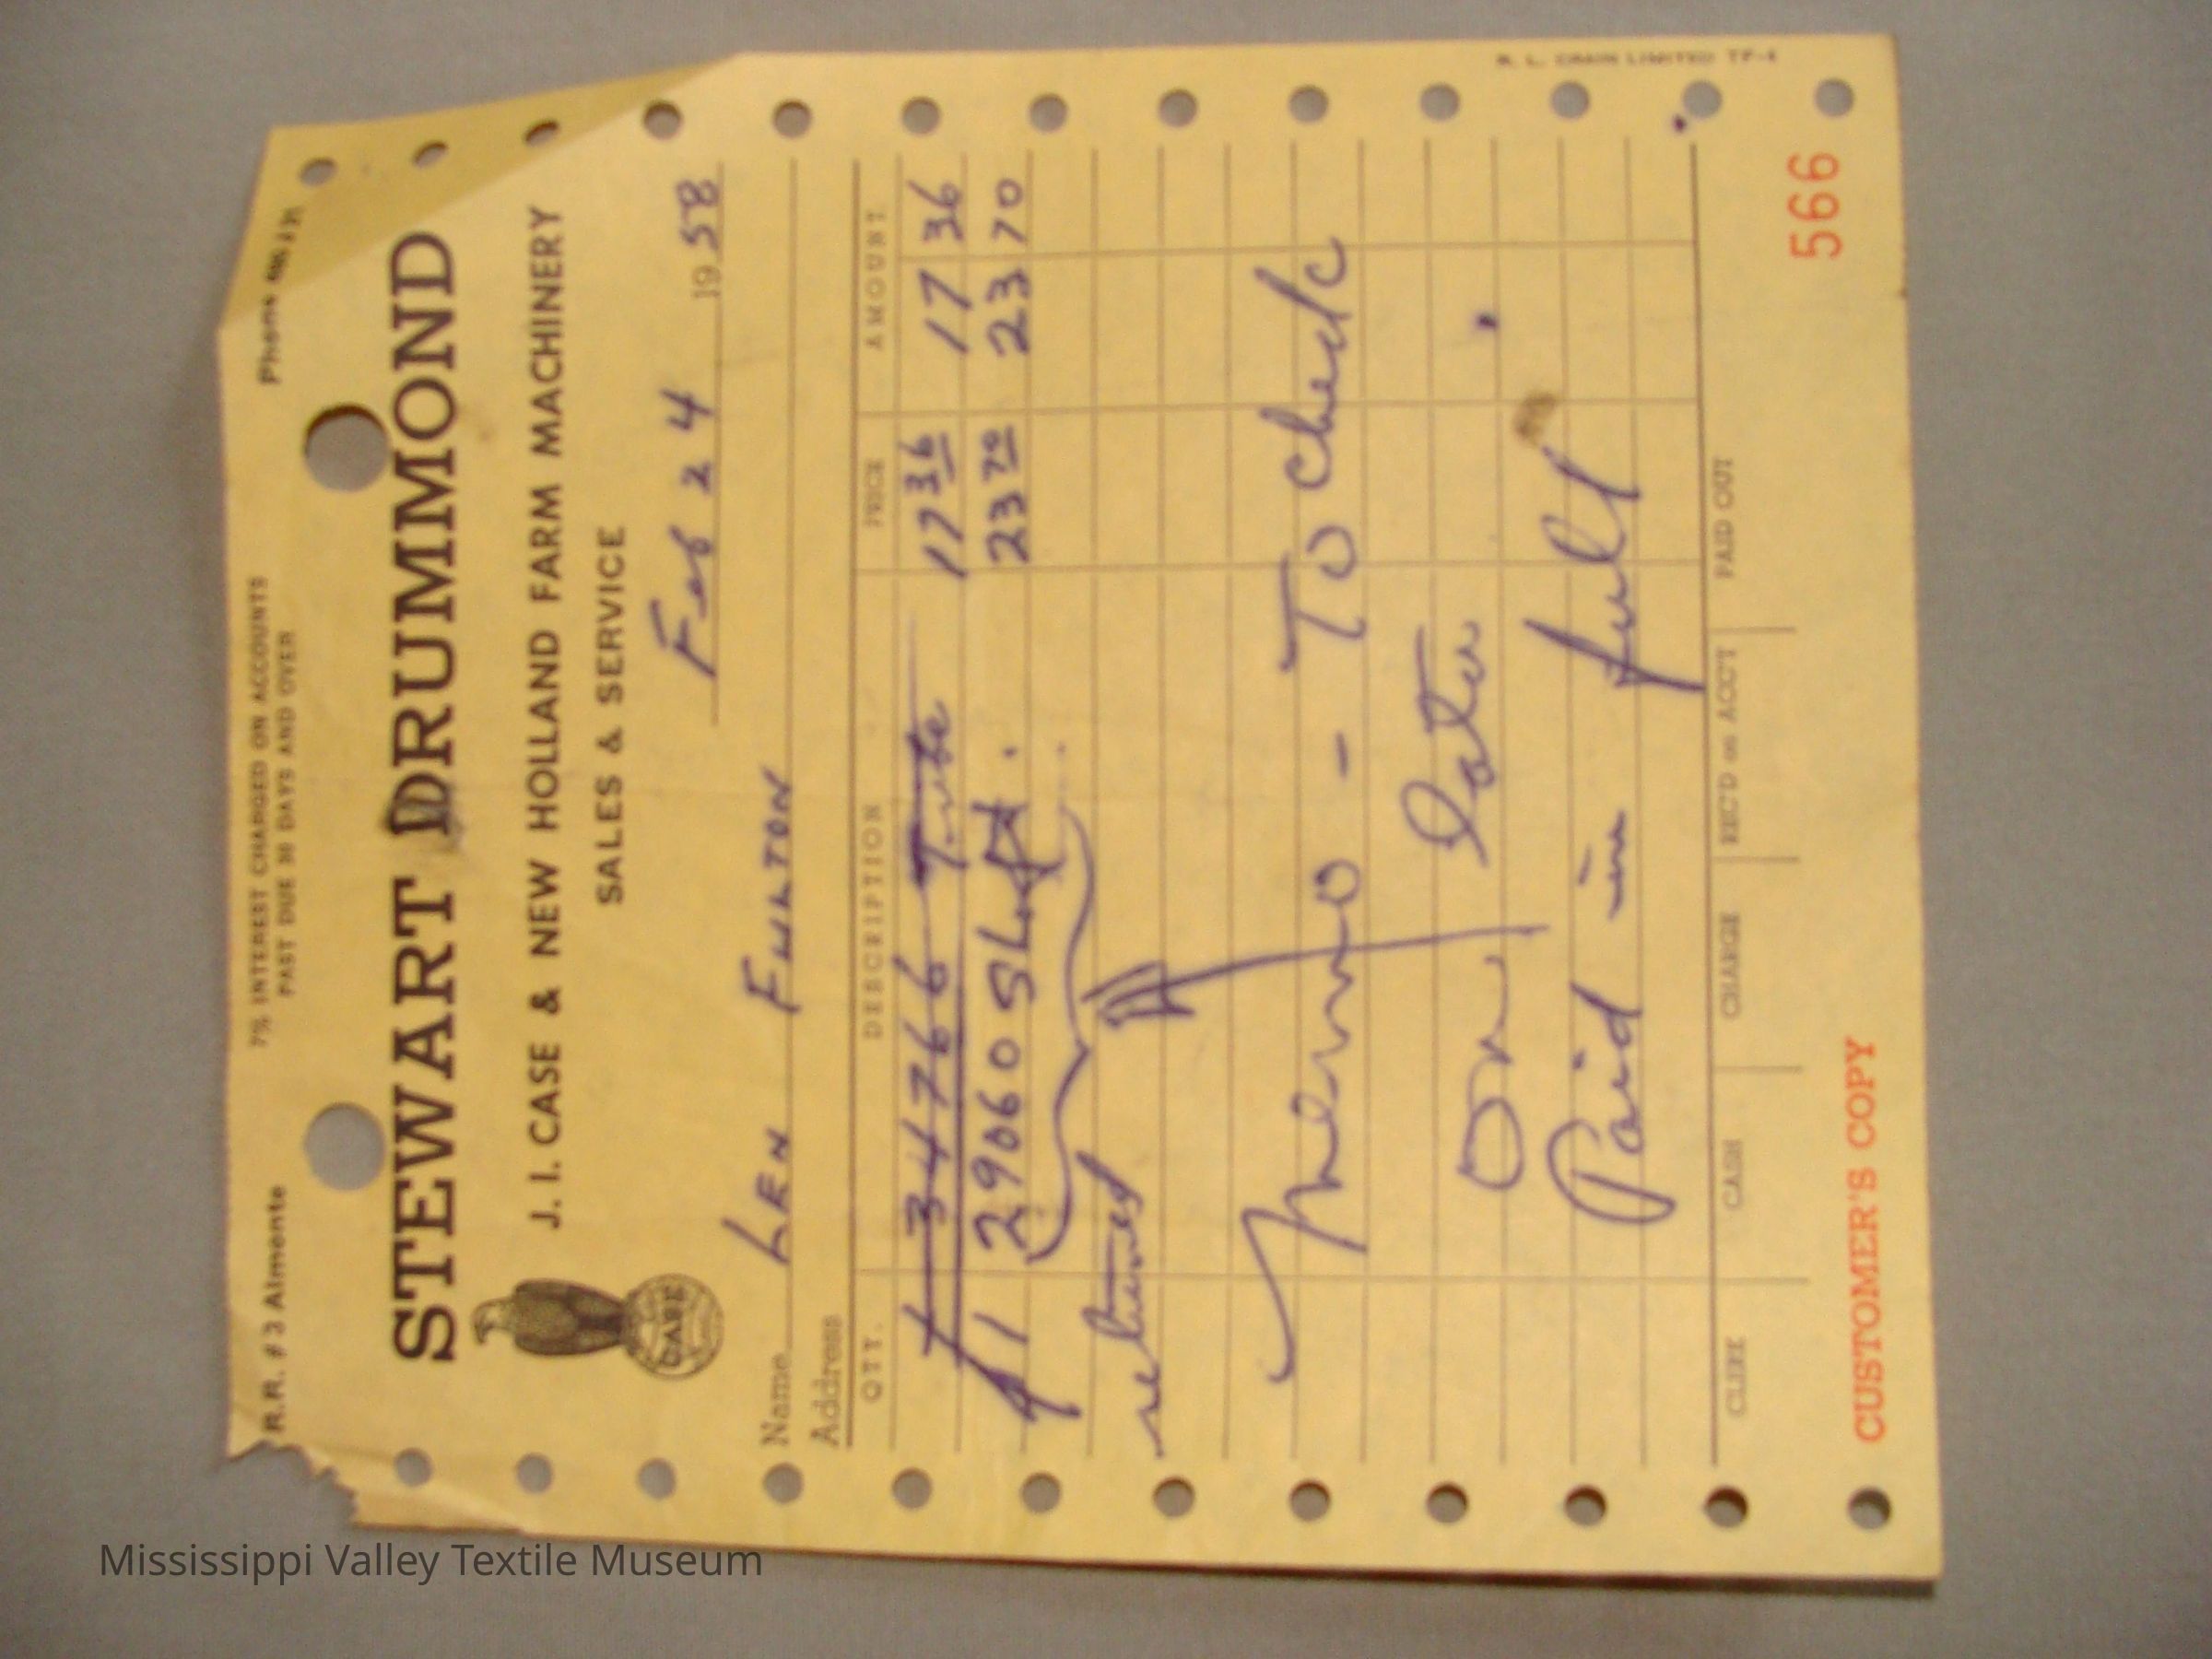 R.R. # 3 Almonte
7% INTEREST CHARGED ON ACCOUNTS
PAST DUE 30 DAYS AND OVER
Phone
STEWART DRUMMOND
J. I. CASE & NEW HOLLAND FARM MACHINERY
SALES & SERVICE
CASE
Feb 24 19 58
Name LEN FULTON
Address
QTY. DESCRIPTION PRICE AMOUNT
1 34766 Tube 17 36 17 36
1 29060 Shaft. 23 70 23 70
returned
Memo - To check
On later
Paid in full
CLERK CASH CHARGE REC'D on ACCT PAID OUT
CUSTOMER'S COPY 566
R. L. CRAIN LIMITED TF-4
Mississippi Valley Textile Museum